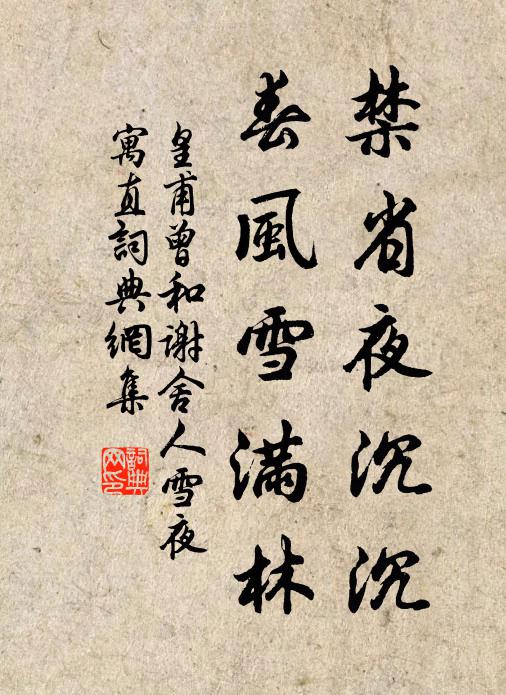 禁省夜沉沉
春風雪滿林
皇甫曾和謝舍人雪夜
寓直詞典網集
詞典
网印